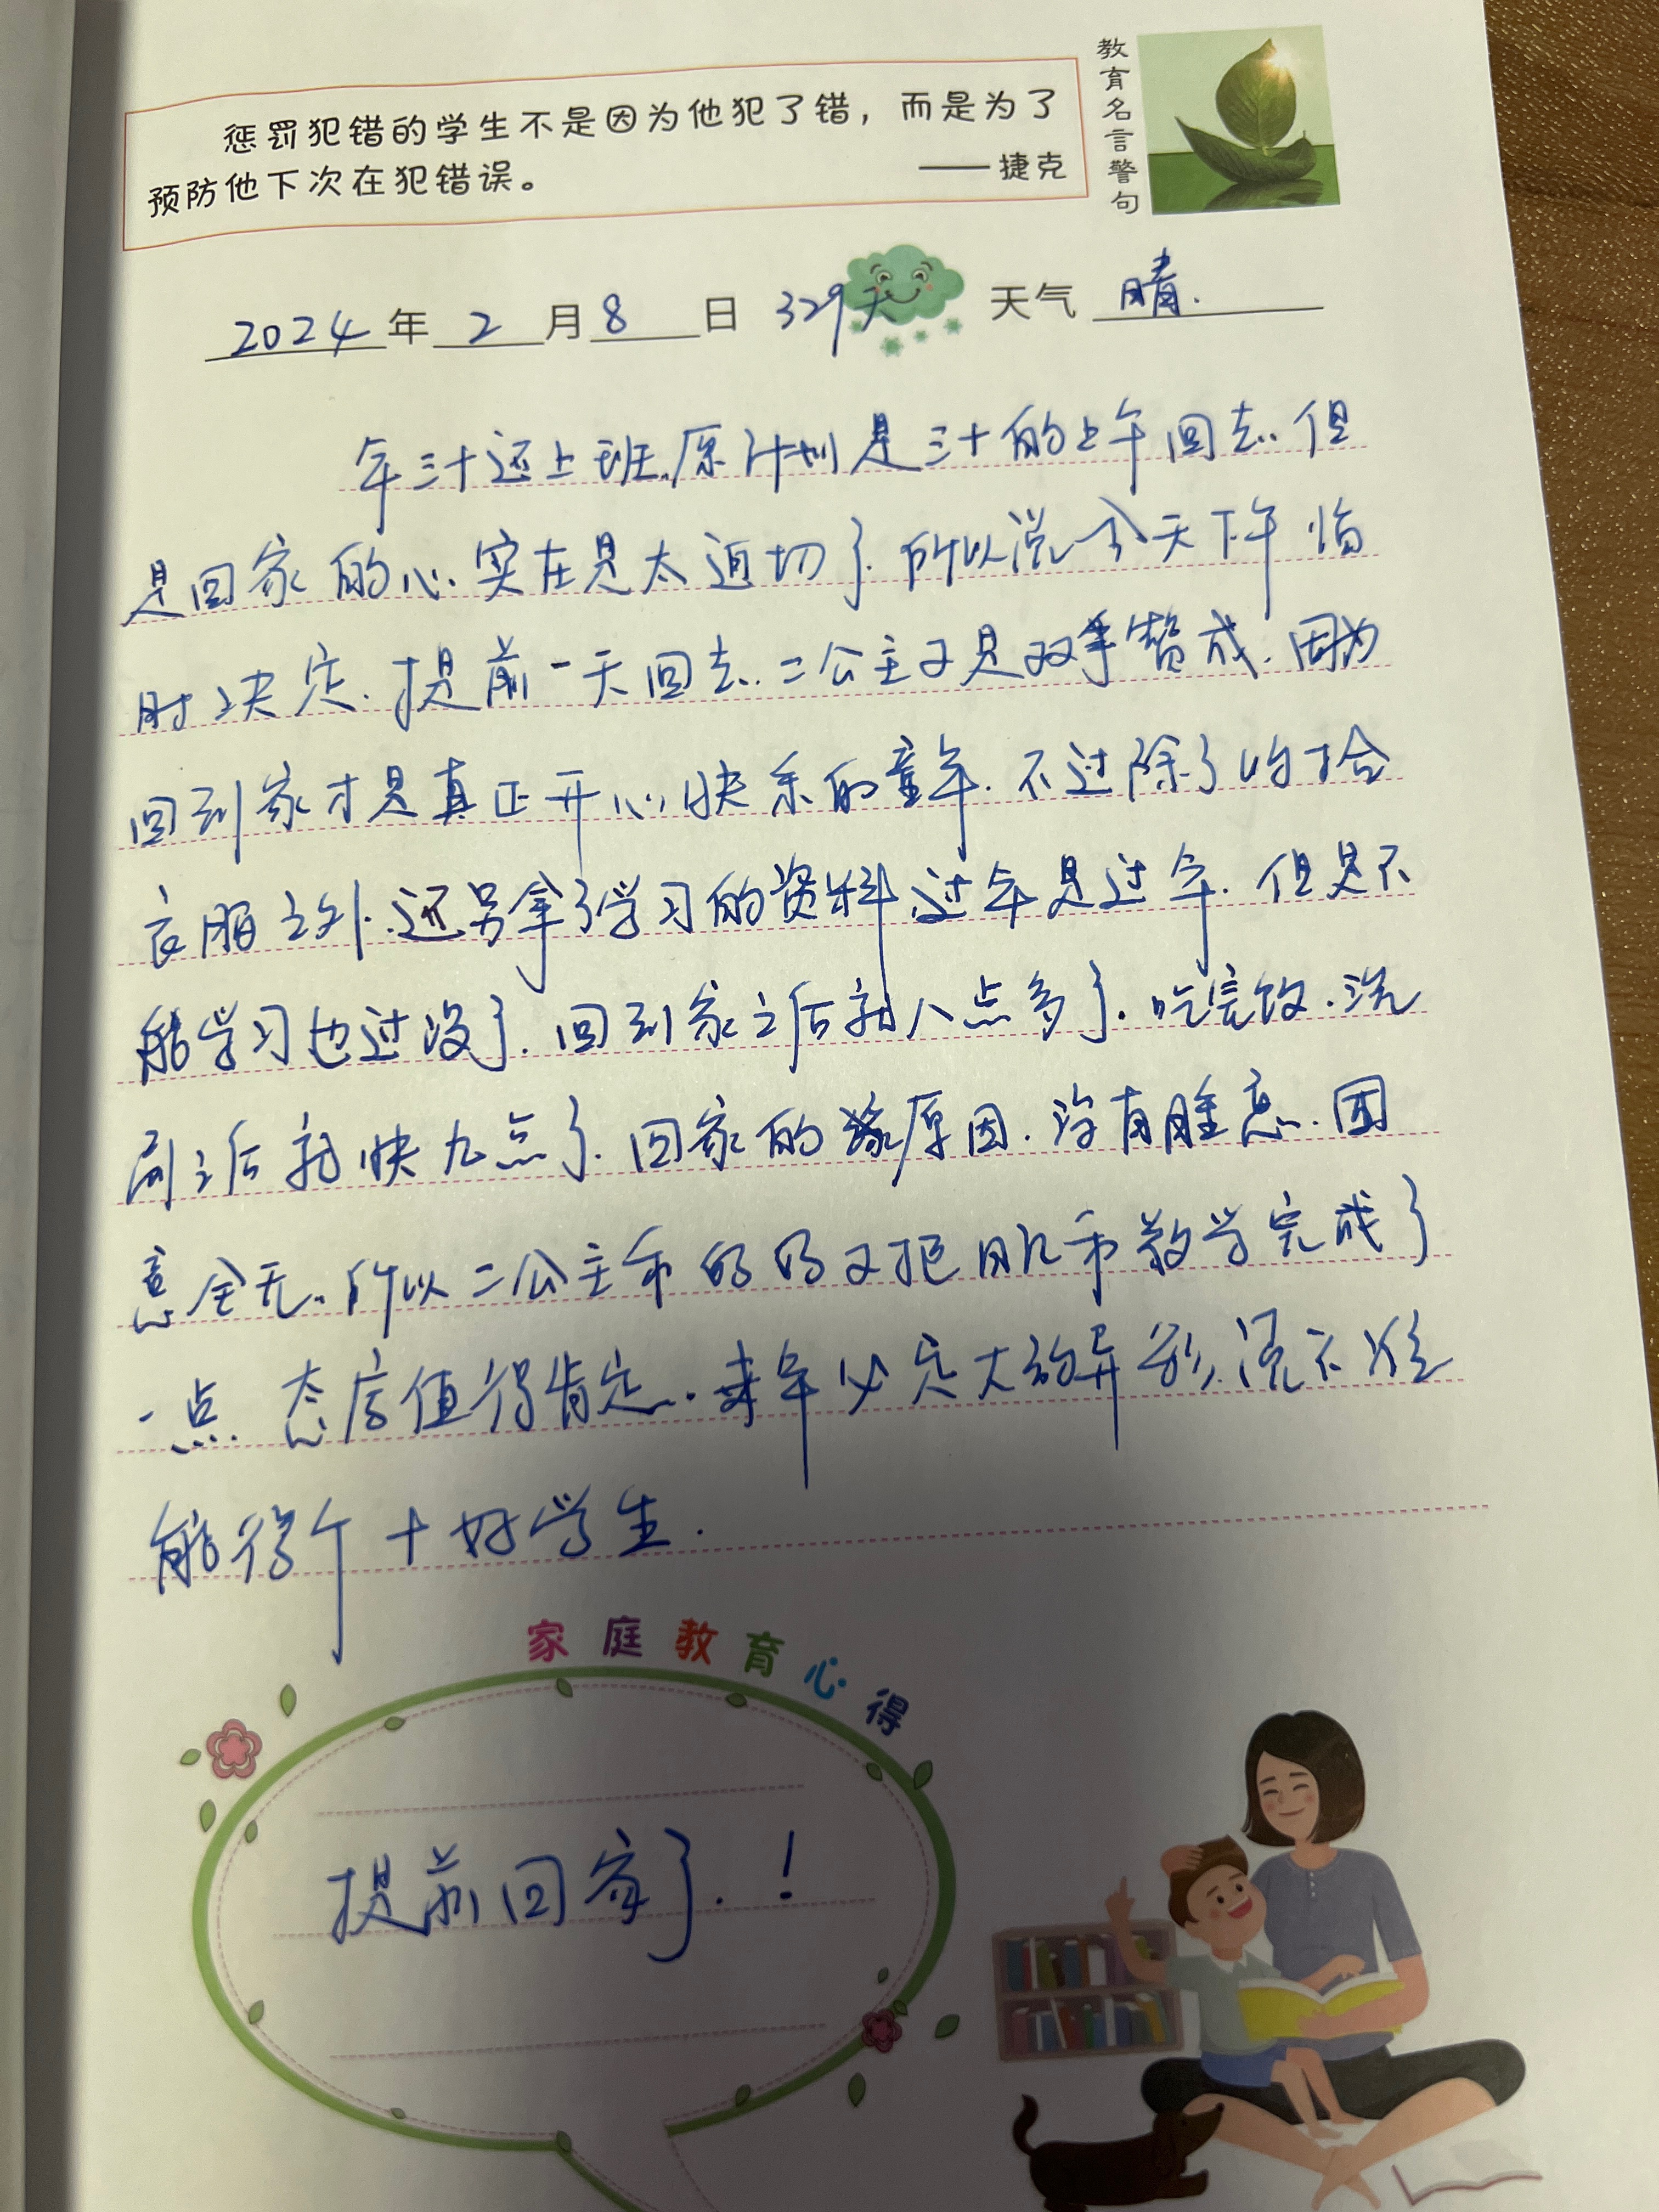 教育名言警句
惩罚犯错的学生不是因为他犯了错，而是为了
预防他下次在犯错误。 ——捷克
2024年2月8日 329天 天气 晴.
年三十还上班.原计划是三十的上午回去.但
是回家的心.实在是太迫切了.所以说今天下午临
时决定.提前一天回去.二公主又是双手赞成.因为
回到家才是真正开心快乐的童年.不过除了收拾
衣服之外.还另拿了学习的资料.过年是过年.但是不
能学习也过没了.回到家之后就八点多了.吃完饭.洗
刷之后就快九点了.回家的缘原因.没有睡意.困
意全无.所以二公主和妈妈又把和数学完成了
一点.态度值得肯定.来年必定大放异彩.说不准
能得个十好学生.
家庭教育心得
提前回家了.！